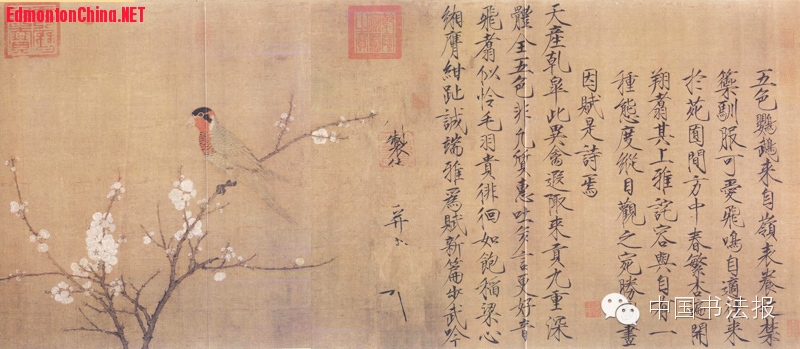 EdmontonChina.NET
五色鸚鵡來自嶺表養之禁
籞馴服可愛飛鳴自適往來
於苑囿間方中春繁杏遍開
翔翥其上雅詫容與自有一
種態度縱目觀之宛勝圖畫
因賦是詩焉
天產乾皋此異禽遐陬來貢九重深
體全五色非凡質惠吐多言更好音
飛翥似憐毛羽貴徘徊如飽稻粱心
緗膺紺趾誠端雅為賦新篇步武吟
製
并書
中国书法报